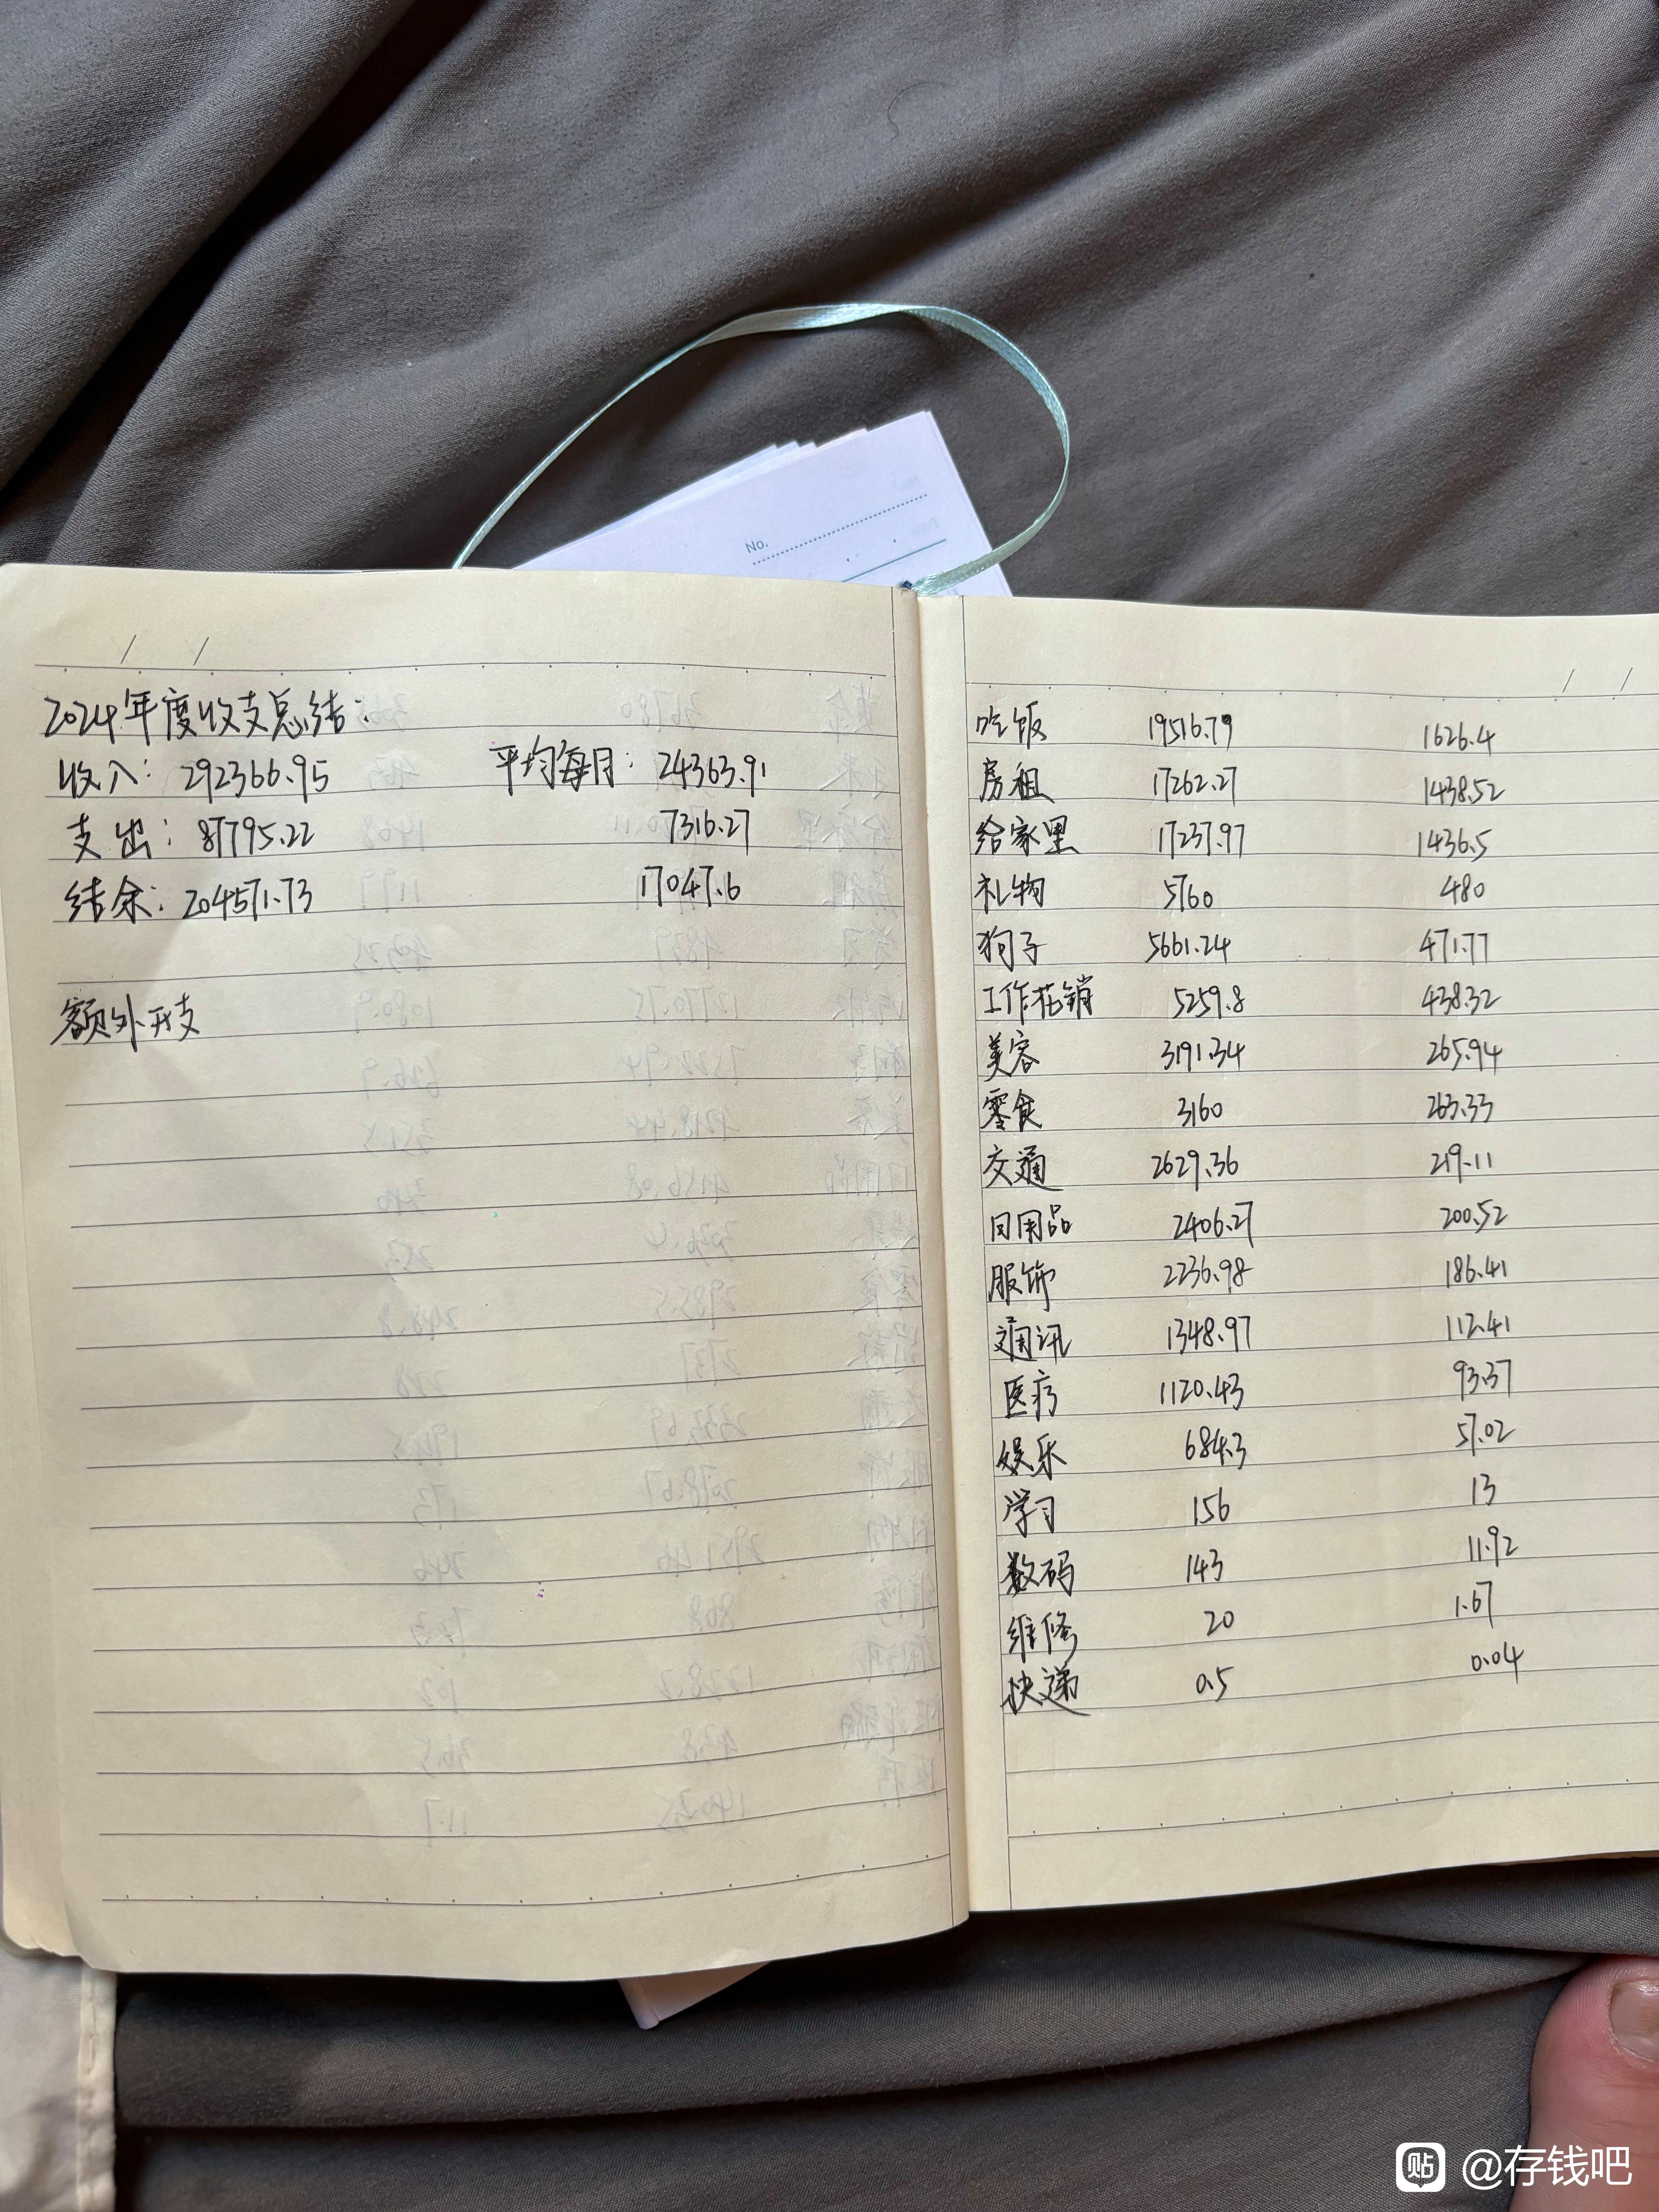 No.
2024年度收支总结:
收入: 292366.95 平均每月: 24363.91
支出: 87795.22 7316.27
结余: 204571.73 17047.6
额外开支
吃饭 19516.79 1626.4
房租 17262.27 1438.52
给家里 17237.97 1436.5
礼物 5760 480
狗子 5661.24 471.77
工作花销 5259.8 438.32
美容 3191.34 265.94
零食 3160 263.33
交通 2629.36 219.11
日用品 2406.27 200.52
服饰 2236.98 186.41
通讯 1348.97 112.41
医疗 1120.43 93.37
娱乐 684.3 57.02
学习 156 13
数码 143 11.92
维修 20 1.67
快递 0.5 0.04
贴 @存钱吧